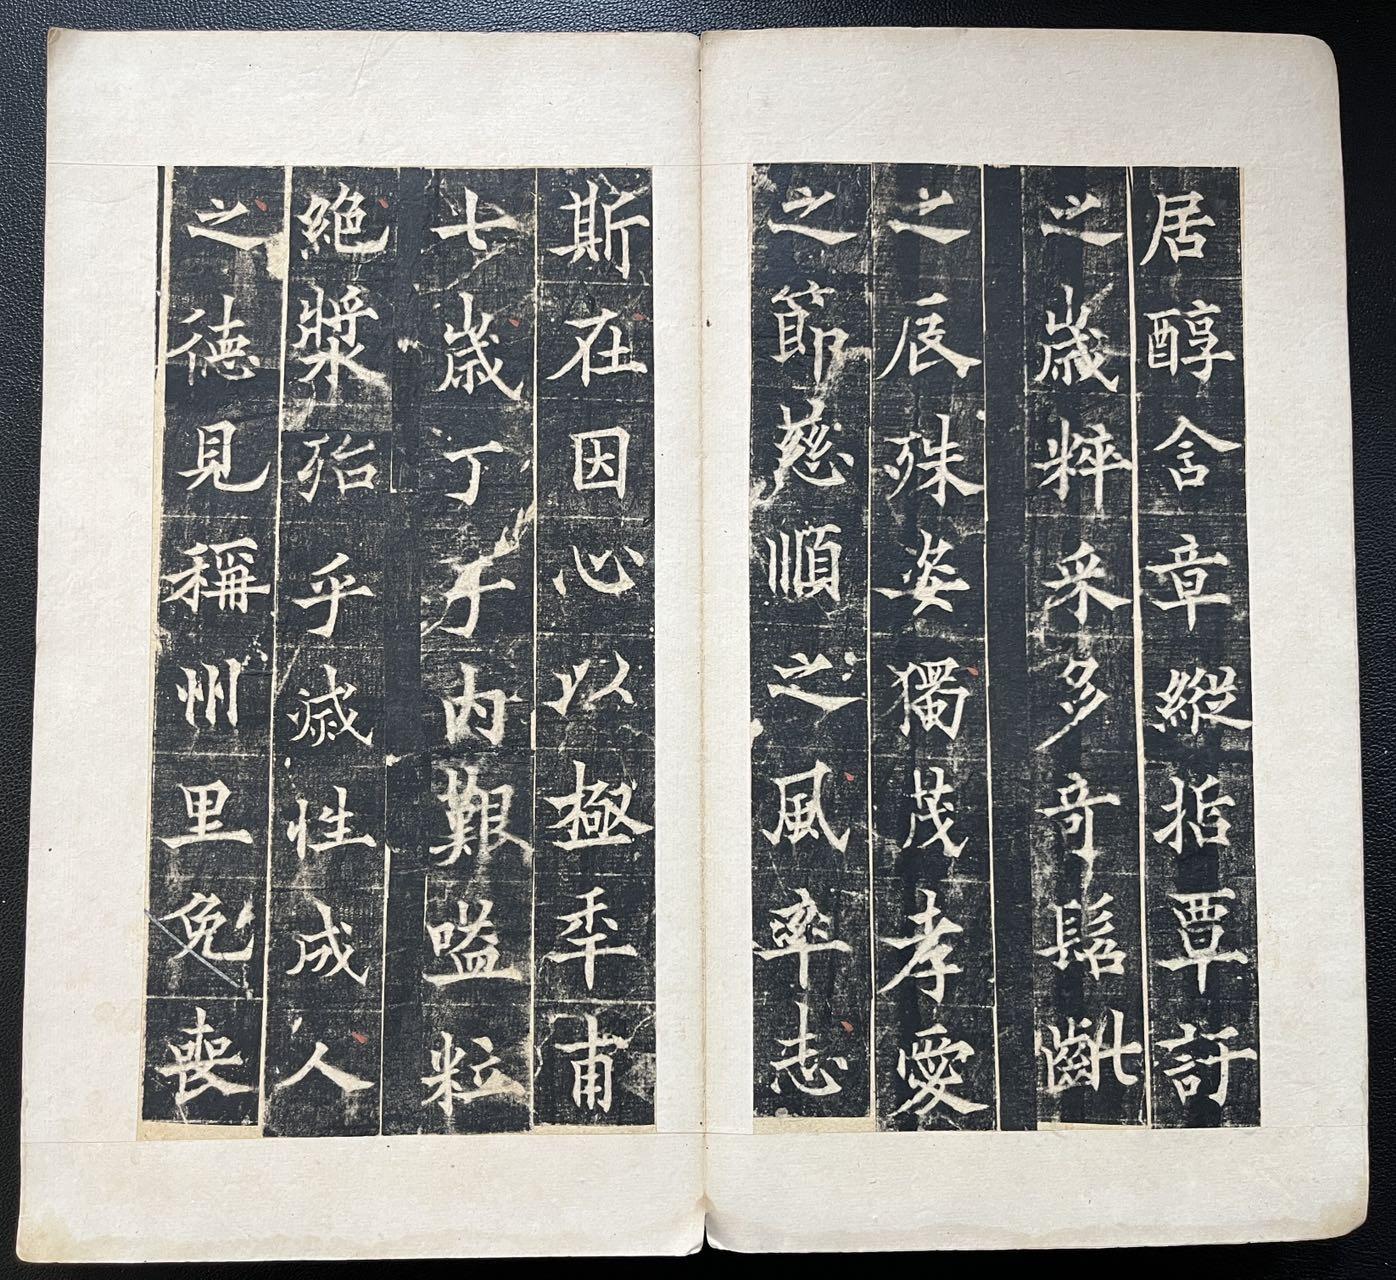 居醇含章縱指覃訏
之歲粹采多奇髫齔
之辰殊姿獨茂孝愛
之節慈順之風率志
斯在因心以極秊甫
七歲丁于內艱嗌粒
絕漿殆乎滅性成人
之德見稱州里免喪